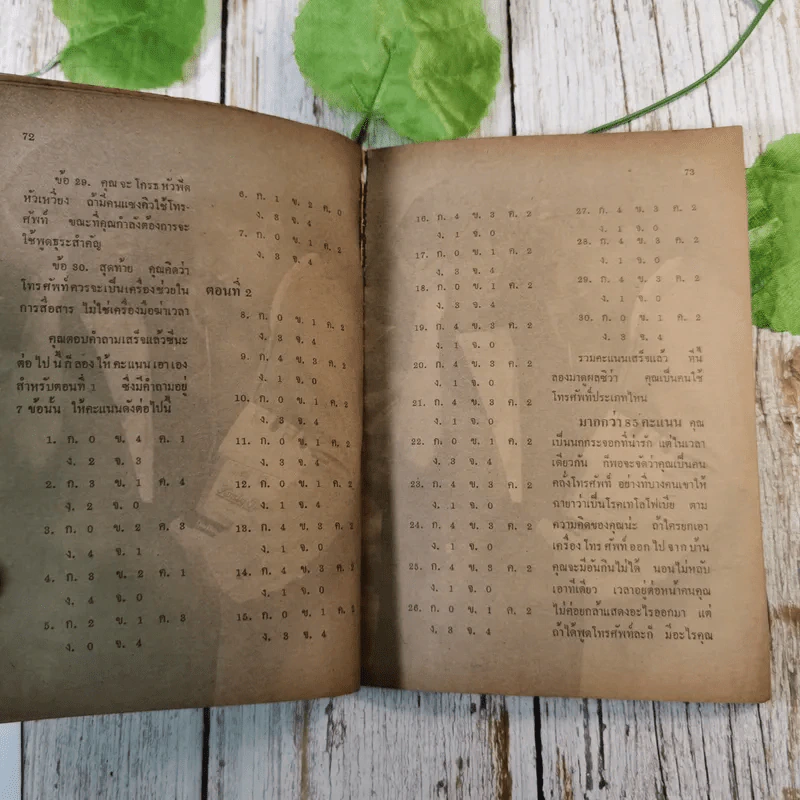 72
ข้อ 29. คุณจะโกรธหัวฟัด
หัวเหวี่ยง ถ้ามีคนแซงคิวใช้โทร-
ศัพท์ ขณะที่คุณกำลังต้องการจะ
ใช้พูดธุระสำคัญ
ข้อ 30. สุดท้าย คุณคิดว่า
โทรศัพท์ควรจะเป็นเครื่องช่วยใน
การสื่อสาร ไม่ใช่เครื่องมือฆ่าเวลา
คุณตอบคำถามเสร็จแล้วซีนะ
ต่อไปนี้ก็ลองให้คะแนนเอาเอง
สำหรับตอนที่ 1 ซึ่งมีคำถามอยู่
7 ข้อนั้น ให้คะแนนดังต่อไปนี้
1. ก. 0 ข. 4 ค. 1
ง. 2 จ. 3
2. ก. 3 ข. 1 ค. 4
ง. 2 จ. 0
3. ก. 0 ข. 2 ค. 3
ง. 4 จ. 1
4. ก. 3 ข. 2 ค. 1
ง. 4 จ. 0
5. ก. 2 ข. 1 ค. 3
ง. 0 จ. 4
6. ก. 1 ข. 2 ค. 0
ง. 3 จ. 4
7. ก. 0 ข. 1 ค. 2
ง. 3 จ. 4
ตอนที่ 2
8. ก. 0 ข. 1 ค. 2
ง. 3 จ. 4
9. ก. 4 ข. 3 ค. 2
ง. 1 จ. 0
10. ก. 0 ข. 1 ค. 2
ง. 3 จ. 4
11. ก. 4 ข. 3 ค. 2
ง. 1 จ. 0
12. ก. 0 ข. 1 ค. 2
ง. 3 จ. 4
13. ก. 4 ข. 3 ค. 2
ง. 1 จ. 0
14. ก. 4 ข. 3 ค. 2
ง. 1 จ. 0
15. ก. 0 ข. 1 ค. 2
ง. 3 จ. 4
73
16. ก. 4 ข. 3 ค. 2
ง. 1 จ. 0
17. ก. 0 ข. 1 ค. 2
ง. 3 จ. 4
18. ก. 0 ข. 1 ค. 2
ง. 3 จ. 4
19. ก. 4 ข. 3 ค. 2
ง. 1 จ. 0
20. ก. 4 ข. 3 ค. 2
ง. 1 จ. 0
21. ก. 4 ข. 3 ค. 2
ง. 1 จ. 0
22. ก. 0 ข. 1 ค. 2
ง. 3 จ. 4
23. ก. 4 ข. 3 ค. 2
ง. 1 จ. 0
24. ก. 4 ข. 3 ค. 2
ง. 1 จ. 0
25. ก. 4 ข. 3 ค. 2
ง. 1 จ. 0
26. ก. 0 ข. 1 ค. 2
ง. 3 จ. 4
27. ก. 4 ข. 3 ค. 2
ง. 1 จ. 0
28. ก. 4 ข. 3 ค. 2
ง. 1 จ. 0
29. ก. 4 ข. 3 ค. 2
ง. 1 จ. 0
30. ก. 0 ข. 1 ค. 2
ง. 3 จ. 4
รวมคะแนนเสร็จแล้ว ทีนี้
ลองมาดูผลซิว่า คุณเป็นคนใช้
โทรศัพท์ประเภทไหน
มากกว่า 85 คะแนน คุณ
เป็นนกกระจอกที่น่ารัก แต่ในเวลา
เดียวกัน ก็พอจะจัดว่าคุณเป็นคน
คลั่งโทรศัพท์ อย่างที่บางคนเขาให้
ฉายาว่าเป็นโรคเทโลโฟเบีย ตาม
ความคิดของคุณน่ะ ถ้าใครยกเอา
เครื่องโทรศัพท์ออกไปจากบ้าน
คุณจะมีอันกินไม่ได้ นอนไม่หลับ
เอาทีเดียว เวลาอยู่ต่อหน้าคนคุณ
ไม่ค่อยกล้าแสดงอะไรออกมา แต่
ถ้าได้พูดโทรศัพท์ละก็ มีอะไรคุณ